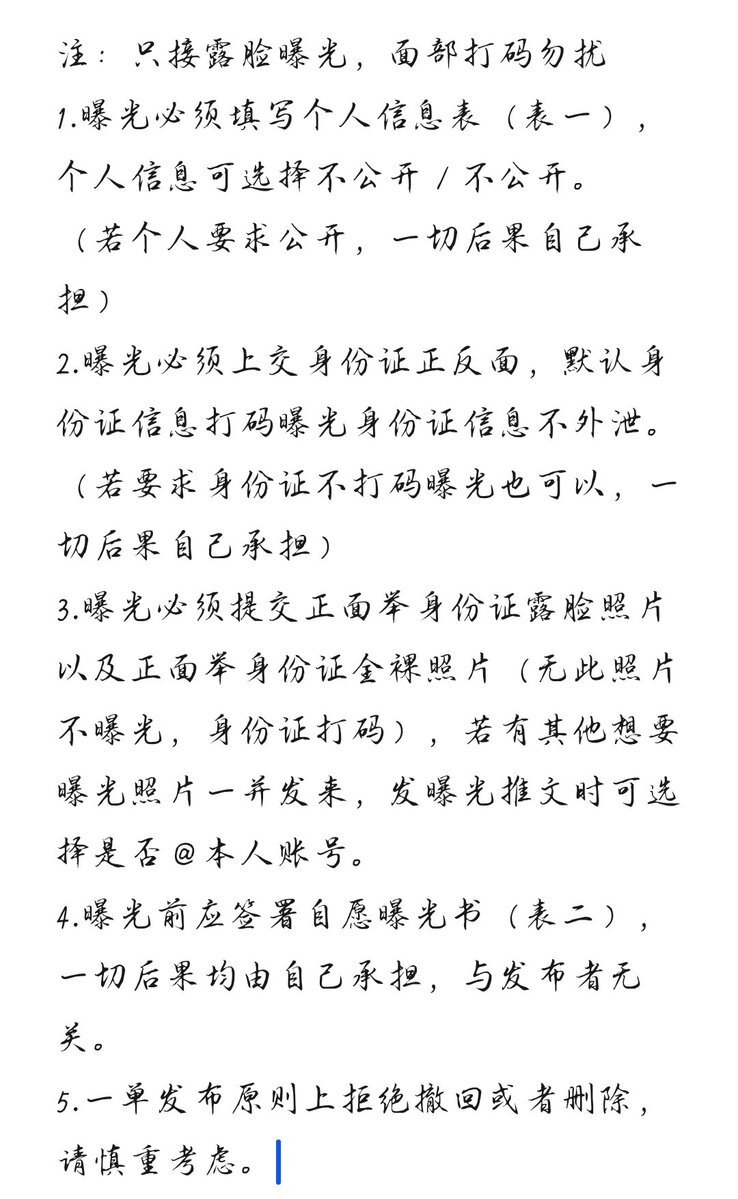 注：只接露脸曝光，面部打码勿扰
1.曝光必须填写个人信息表（表一），
个人信息可选择不公开/不公开。
（若个人要求公开，一切后果自己承
担）
2.曝光必须上交身份证正反面，默认身
份证信息打码曝光身份证信息不外泄。
（若要求身份证不打码曝光也可以，一
切后果自己承担）
3.曝光必须提交正面举身份证露脸照片
以及正面举身份证全裸照片（无此照片
不曝光，身份证打码），若有其他想要
曝光照片一并发来，发曝光推文时可选
择是否@本人账号。
4.曝光前应签署自愿曝光书（表二），
一切后果均由自己承担，与发布者无
关。
5.一单发布原则上拒绝撤回或者删除，
请慎重考虑。